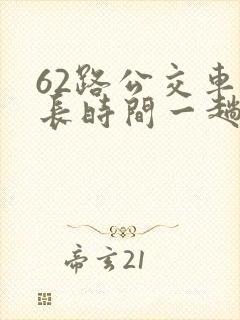 62路公交車
長時間一趟
帝玄21